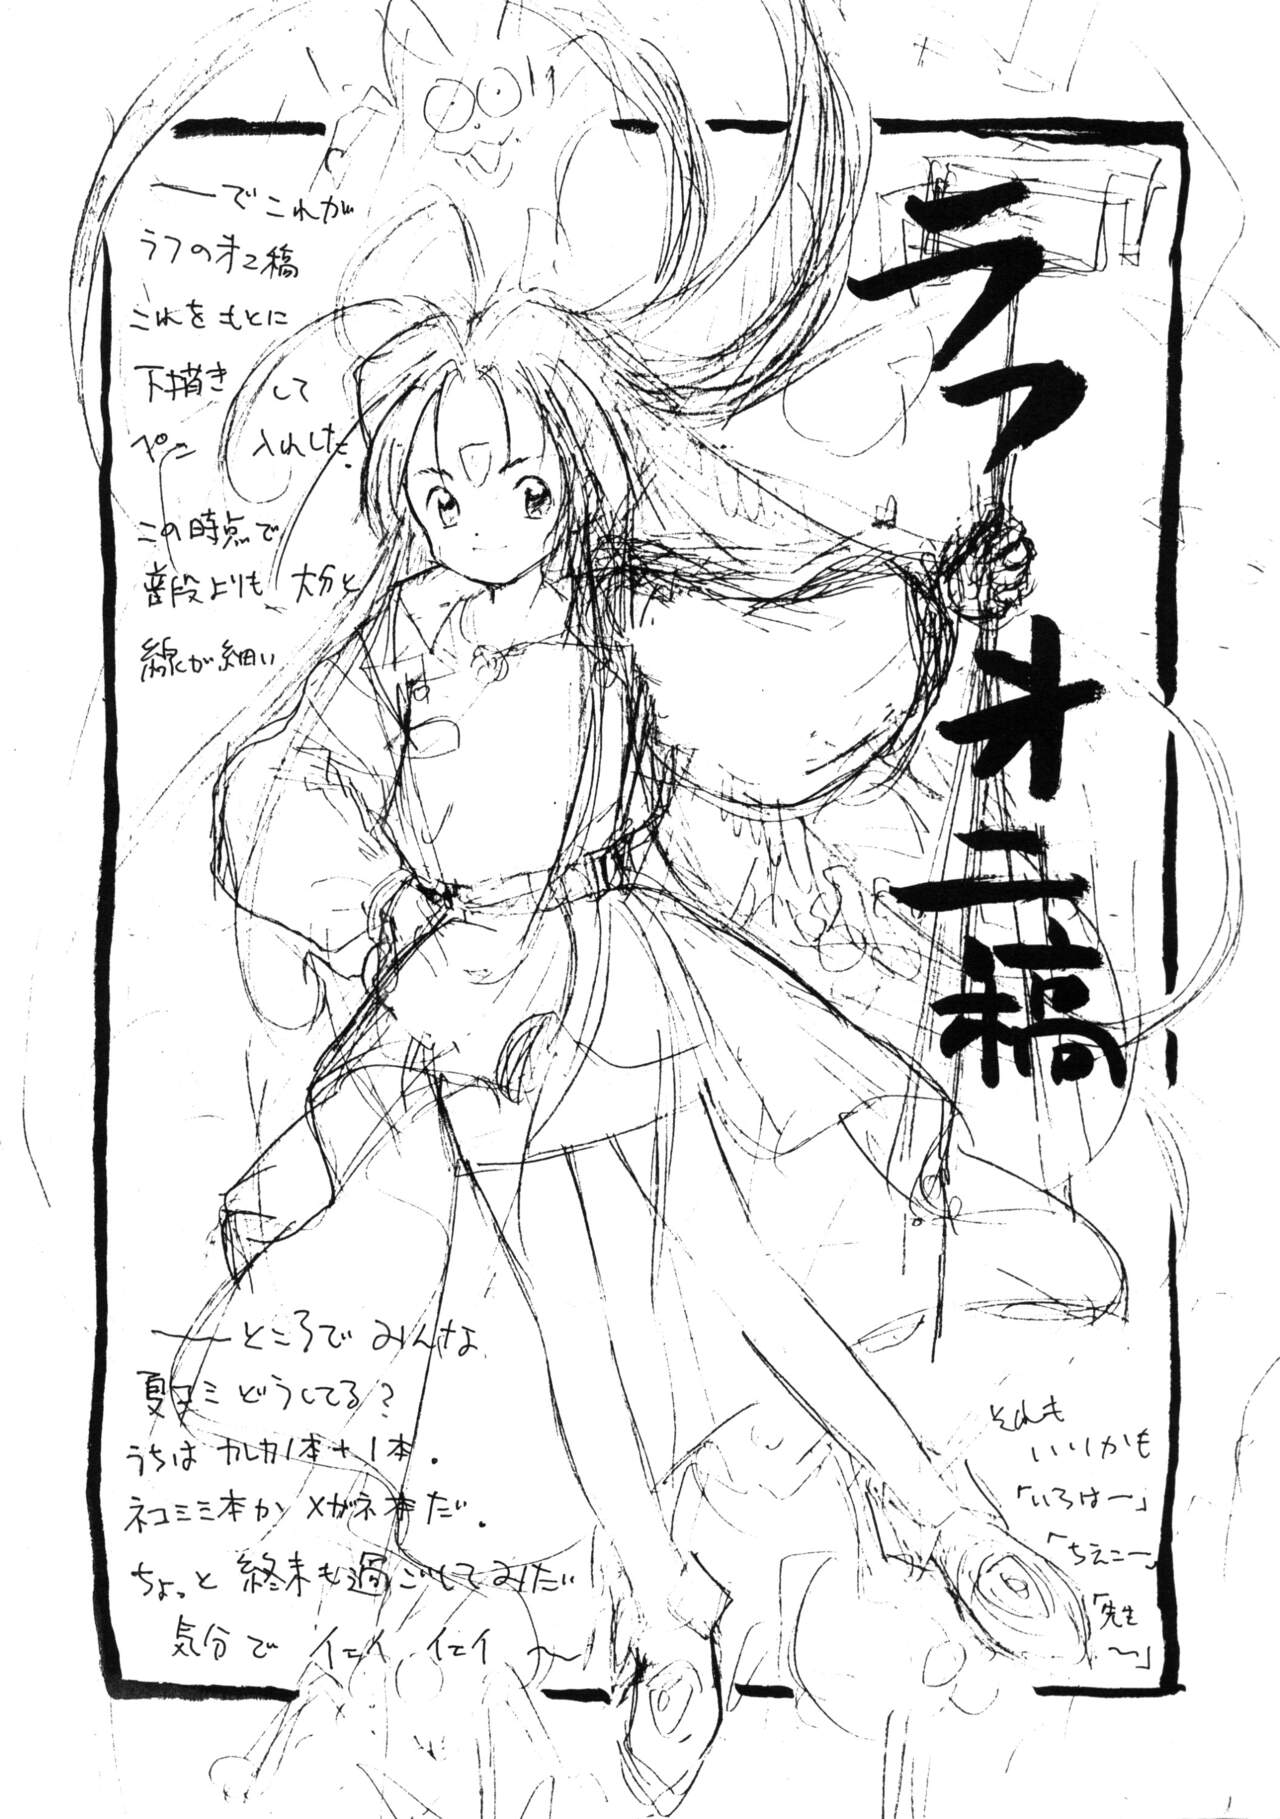 ラフ
才二稿
ーでこれが
ラフの才二稿
これをもとに
下描きして
ペン入れした.
この時点で
普段よりも大分と
線が細い
ーところでみんな
夏コミどうしてる?
うちは カレカノ本+1本.
ネコミミ本か メガネ本だ.
ちょっと終末も過ごしてみたい
気分で イエイ イエイ 〜
それも
いいかも
「いろはー」
「ちえこー」
「先生
〜」